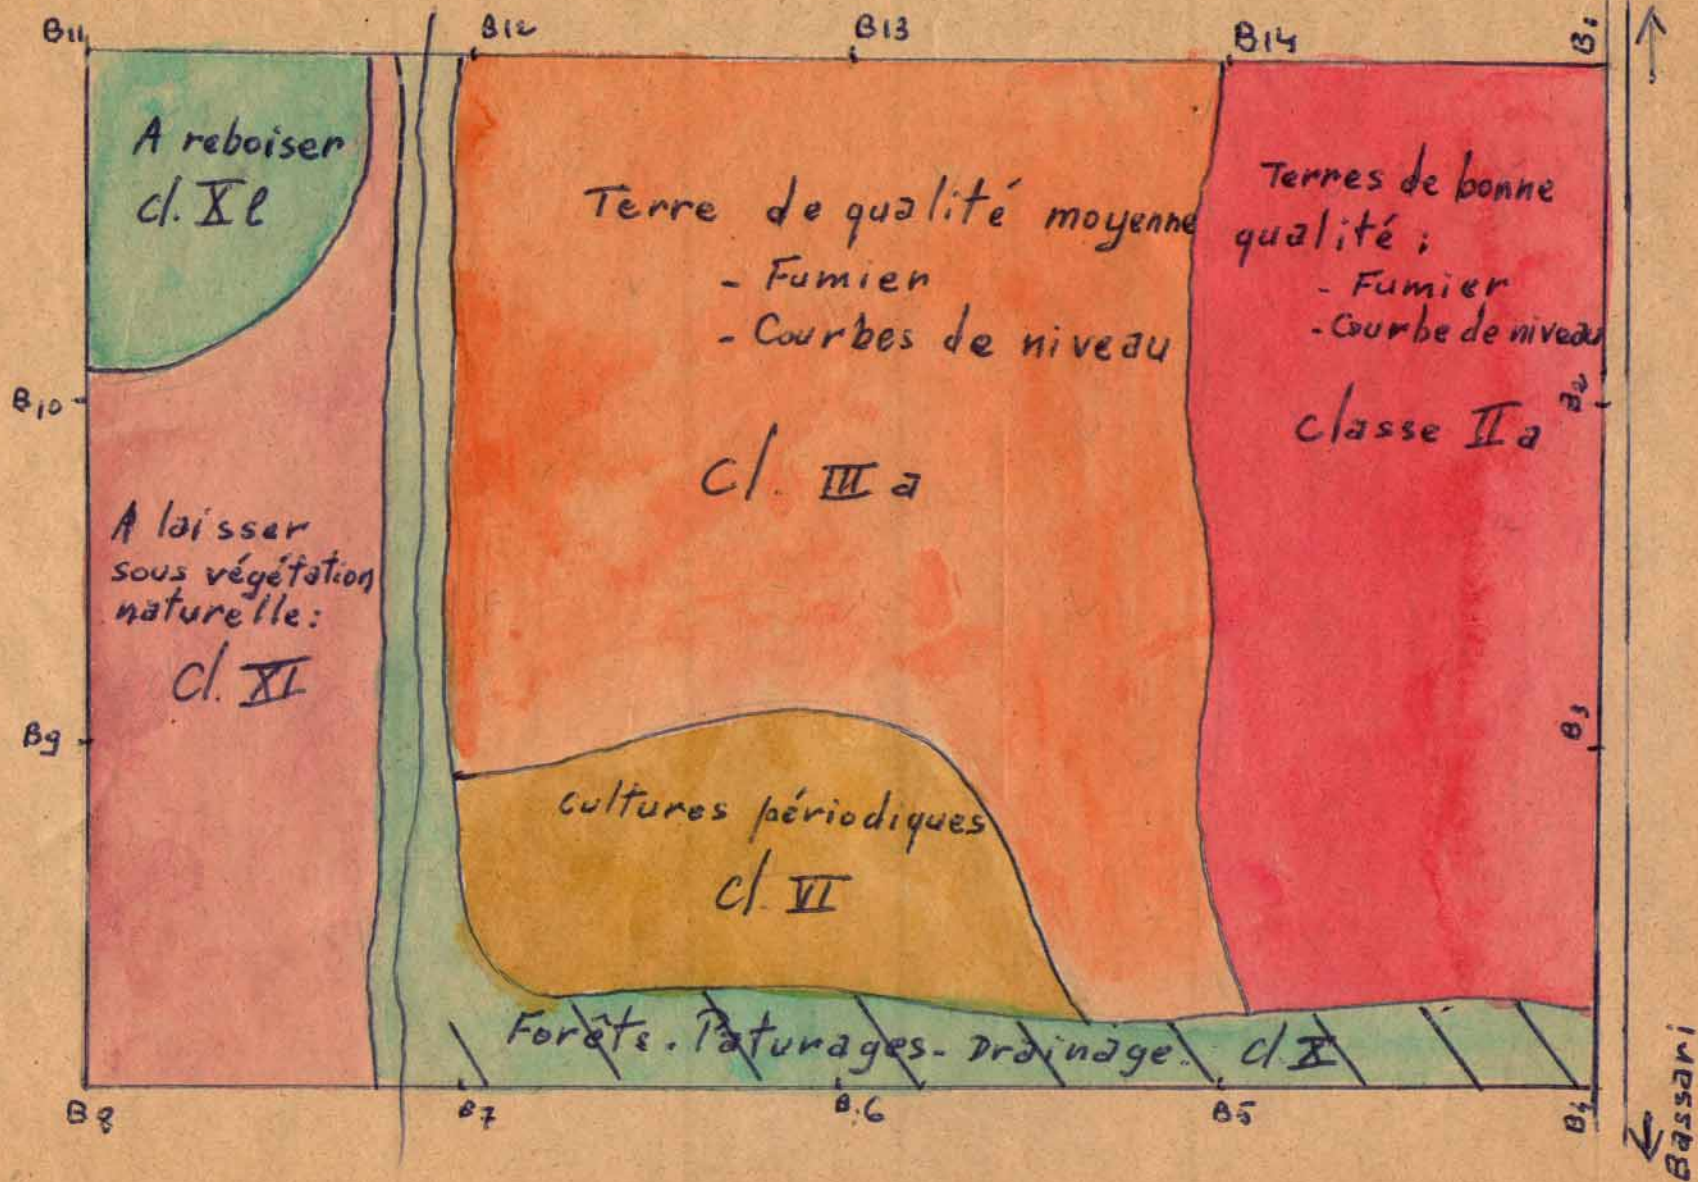 B11
B12
B13
B14
B1
A reboiser
cl. Xl
Terre de qualité moyenne
- Fumier
- Courbes de niveau
Cl. III a
Terres de bonne
qualité :
- Fumier
- Courbe de niveau
classe II a
B10
B2
A laisser
sous végétation
naturelle :
Cl. XI
B9
B3
Cultures périodiques
Cl. VI
Forêts. Paturages - Drainage. cl X
B8
B7
B.6
B5
B4
Bassari